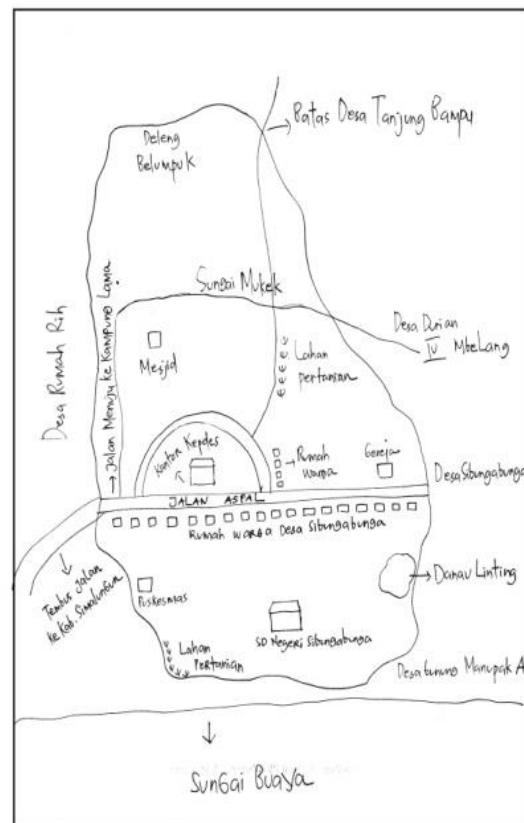 Batas Desa Tanjung Bampu
Deleng
Belumpuk
Sungai Mukek
Desa Durian
IV Mbelang
Desa Rumah Rih
Jalan Menuju ke Kampung Lama
Mesjid
Lahan
pertanian
Kantor Kepdes
Rumah
Warga
Gereja
Desa Sibungabunga
JALAN ASPAL
Rumah Warga Desa Sibungabunga
Tembus Jalan
ke Kab. Simalungun
Danau Linting
Puskesmas
SD Negeri Sibungabunga
Lahan
Pertanian
Desa Gunung Manupak A
Sungai Buaya